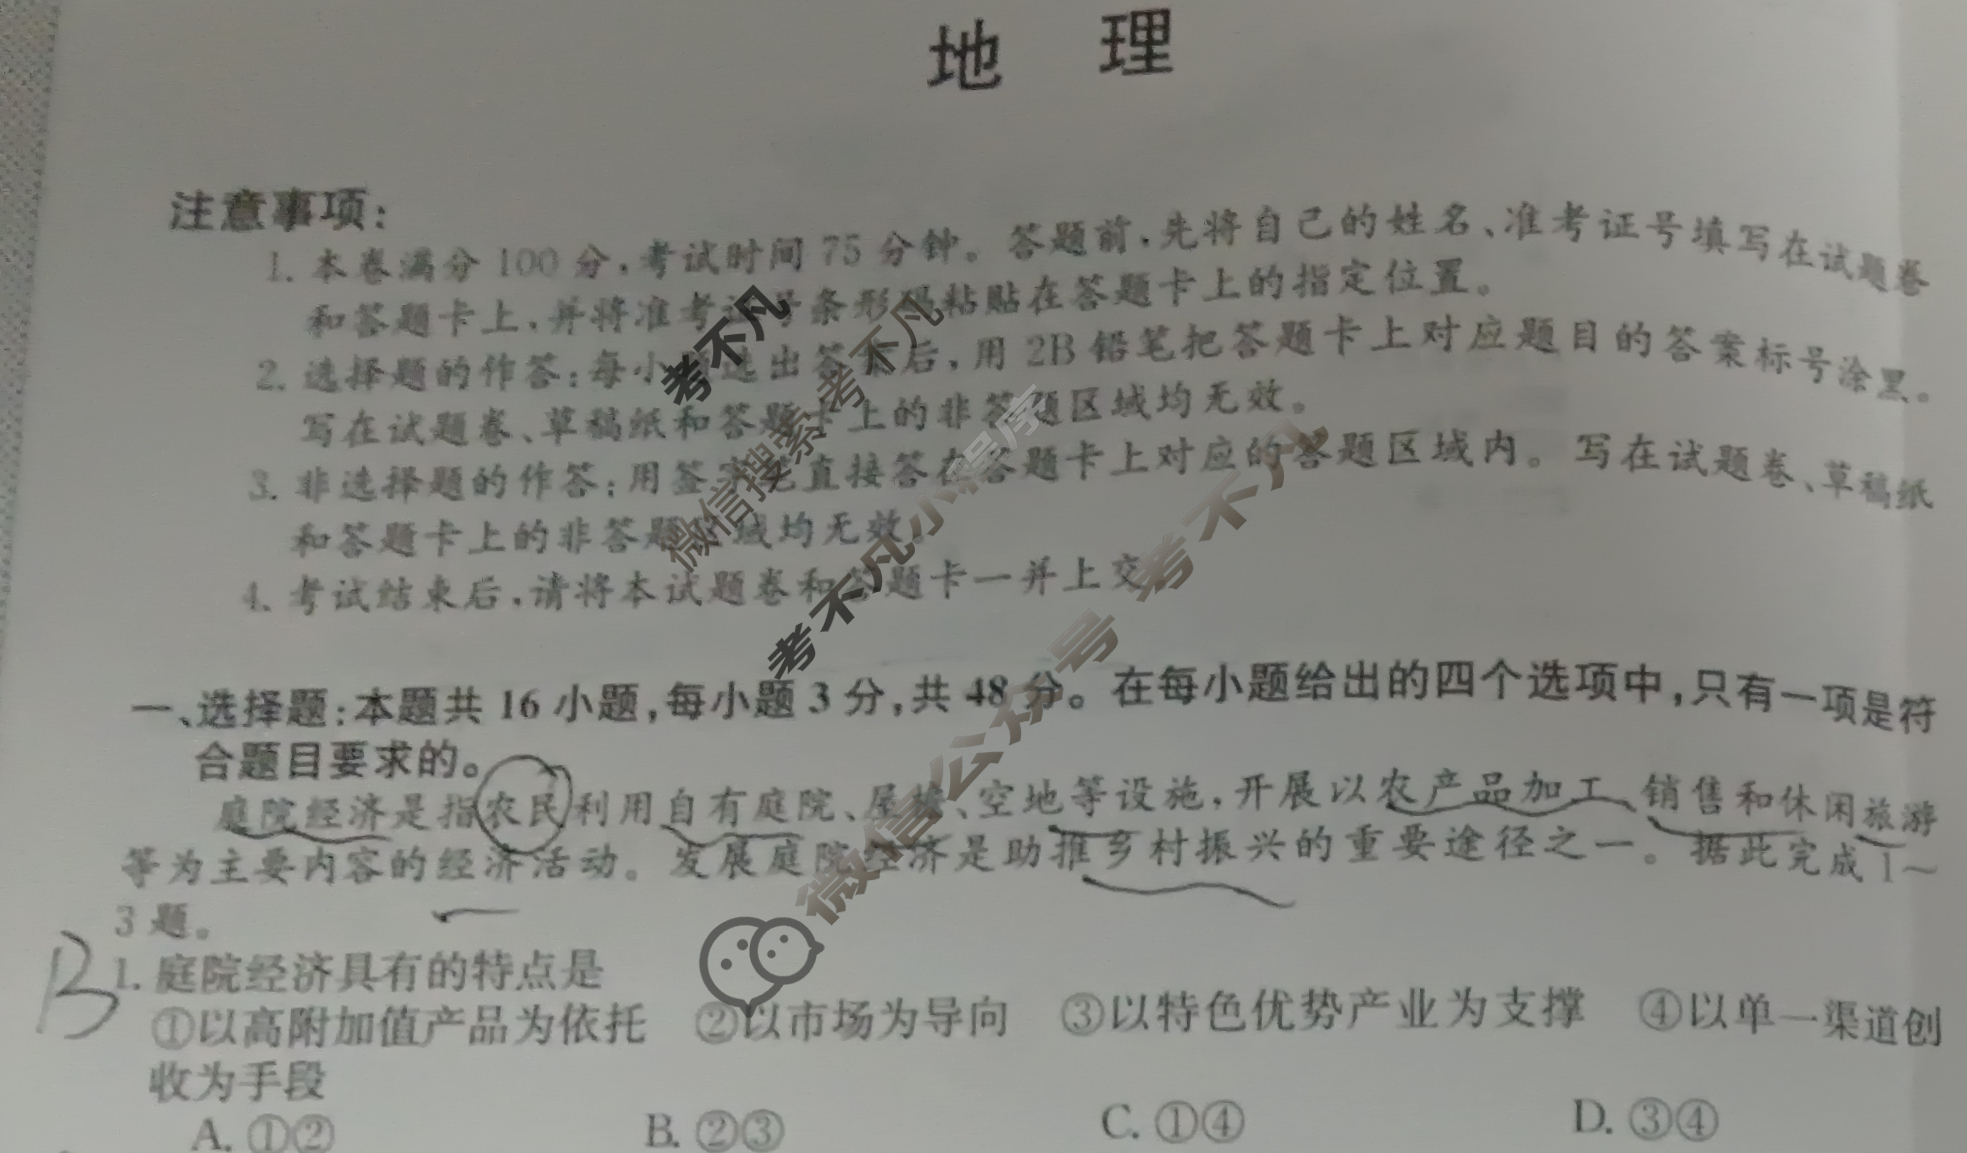 地 理
注意事项:
1. 本卷满分 100 分,考试时间 75 分钟。答题前,先将自己的姓名、准考证号填写在试题卷
和答题卡上,并将准考证号条形码粘贴在答题卡上的指定位置。
2. 选择题的作答:每小题选出答案后,用 2B 铅笔把答题卡上对应题目的答案标号涂黑。
写在试题卷、草稿纸和答题卡上的非答题区域均无效。
3. 非选择题的作答:用签字笔直接答在答题卡上对应的答题区域内。写在试题卷、草稿纸
和答题卡上的非答题区域均无效。
4. 考试结束后,请将本试题卷和答题卡一并上交
一、选择题:本题共 16 小题,每小题 3 分,共 48 分。在每小题给出的四个选项中,只有一项是符
合题目要求的。
庭院经济是指农民利用自有庭院、屋檐、空地等设施,开展以农产品加工、销售和休闲旅游
等为主要内容的经济活动。发展庭院经济是助推乡村振兴的重要途径之一。据此完成 1~
3 题。
B
1. 庭院经济具有的特点是
①以高附加值产品为依托 ②以市场为导向 ③以特色优势产业为支撑 ④以单一渠道创
收为手段
A. ①② B. ②③ C. ①④ D. ③④
考不凡
微信搜索考不凡
考不凡小程序
微信公众号 考不凡